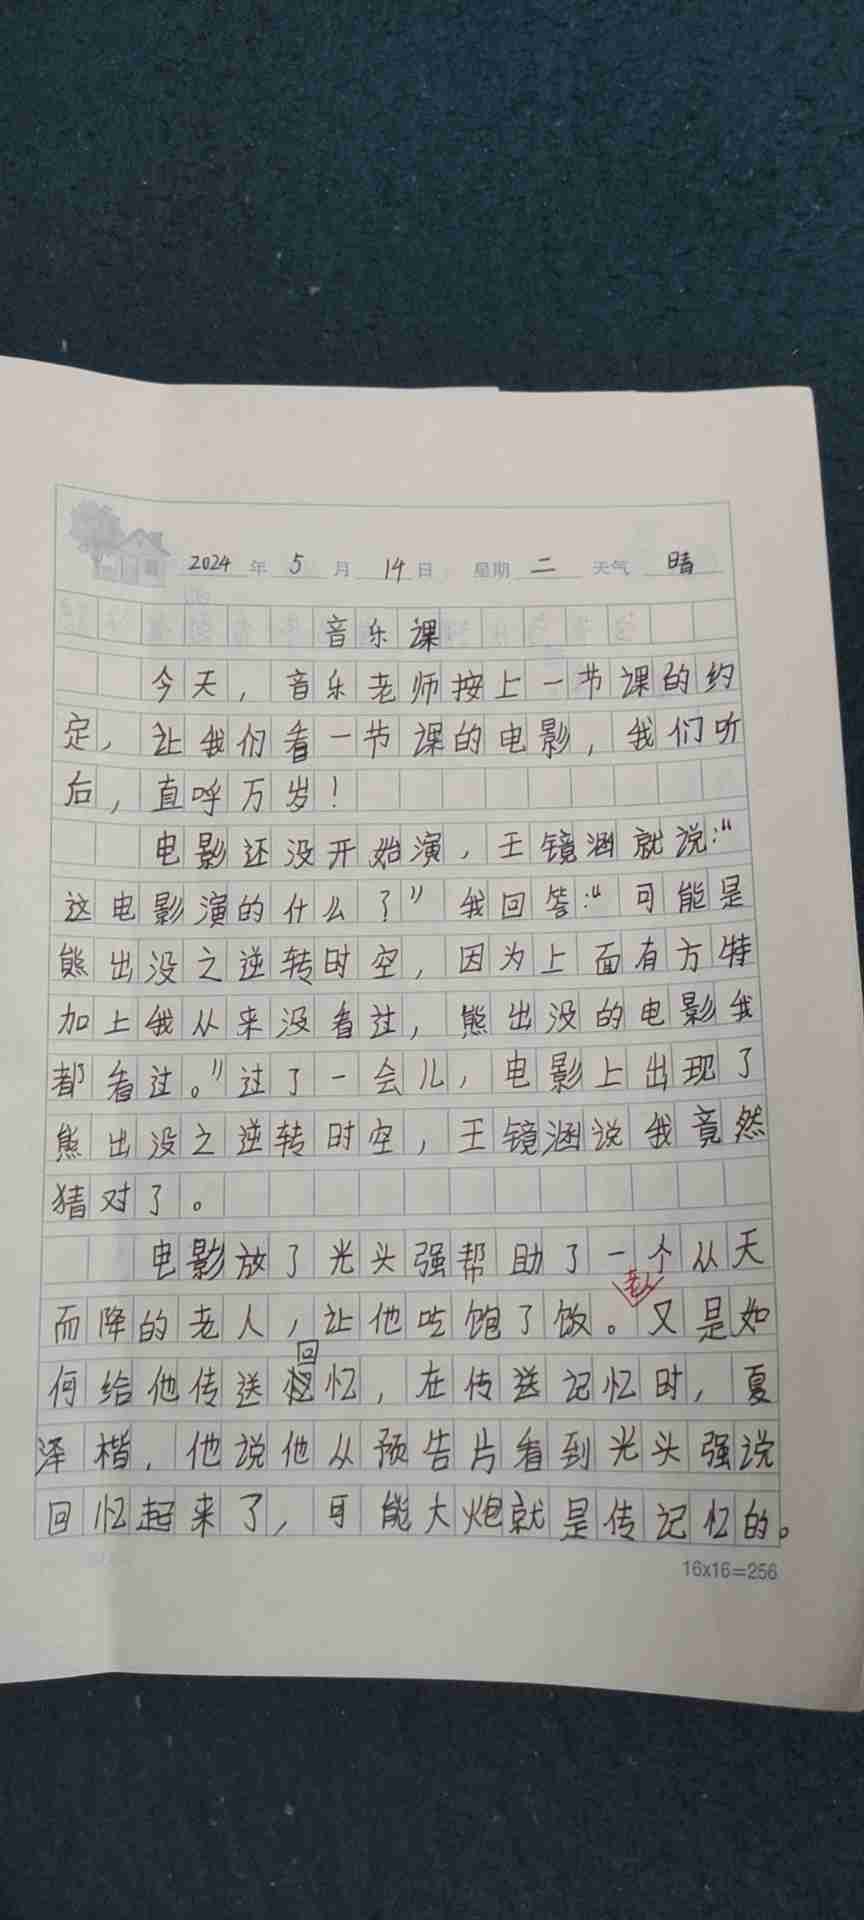 2024年5月14日 星期二 天气 晴
音乐课
今天，音乐老师按上一节课的约
定，让我们看一节课的电影，我们听
后，直呼万岁！
电影还没开始演，王镜涵就说：“
这电影演的什么？”我回答：“可能是
熊出没之逆转时空，因为上面有方特
加上我从来没看过，熊出没的电影我
都看过。”过了一会儿，电影上出现了
熊出没之逆转时空，王镜涵说我竟然
猜对了。
电影放了光头强帮助了一个从天
老人
而降的老人，让他吃饱了饭。又是如
回
何给他传送忆，在传送记忆时，夏
泽楷，他说他从预告片看到光头强说
回忆起来了，可能大炮就是传记忆的。
16x16=256